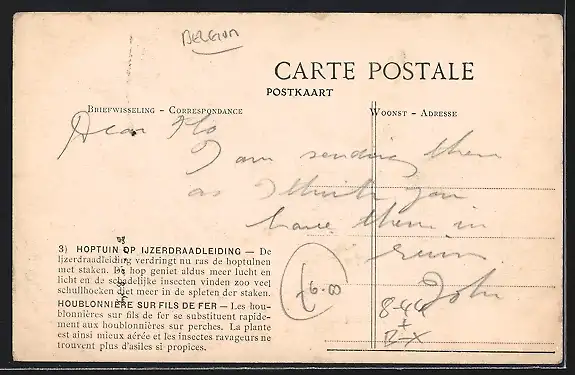 BELGIUM
CARTE POSTALE
POSTKAART
BRIEFWISSELING – CORRESPONDANCE
WOONST – ADRESSE
Dear Flo
I am sending them
as I think you
have them in
ruin
John
3) HOPTUIN OP IJZERDRAADLEIDING — De
Ijzerdraadleiding verdringt nu ras de hoptuinen
met staken. De hop geniet aldus meer lucht en
licht en de schadelijke insecten vinden zoo veel
schuilhoeken niet meer in de spleten der staken.
HOUBLONNIÈRE SUR FILS DE FER — Les hou-
blonnières sur fils de fer se substituent rapide-
ment aux houblonnières sur perches. La plante
est ainsi mieux aérée et les insectes ravageurs ne
trouvent plus d'asiles si propices.